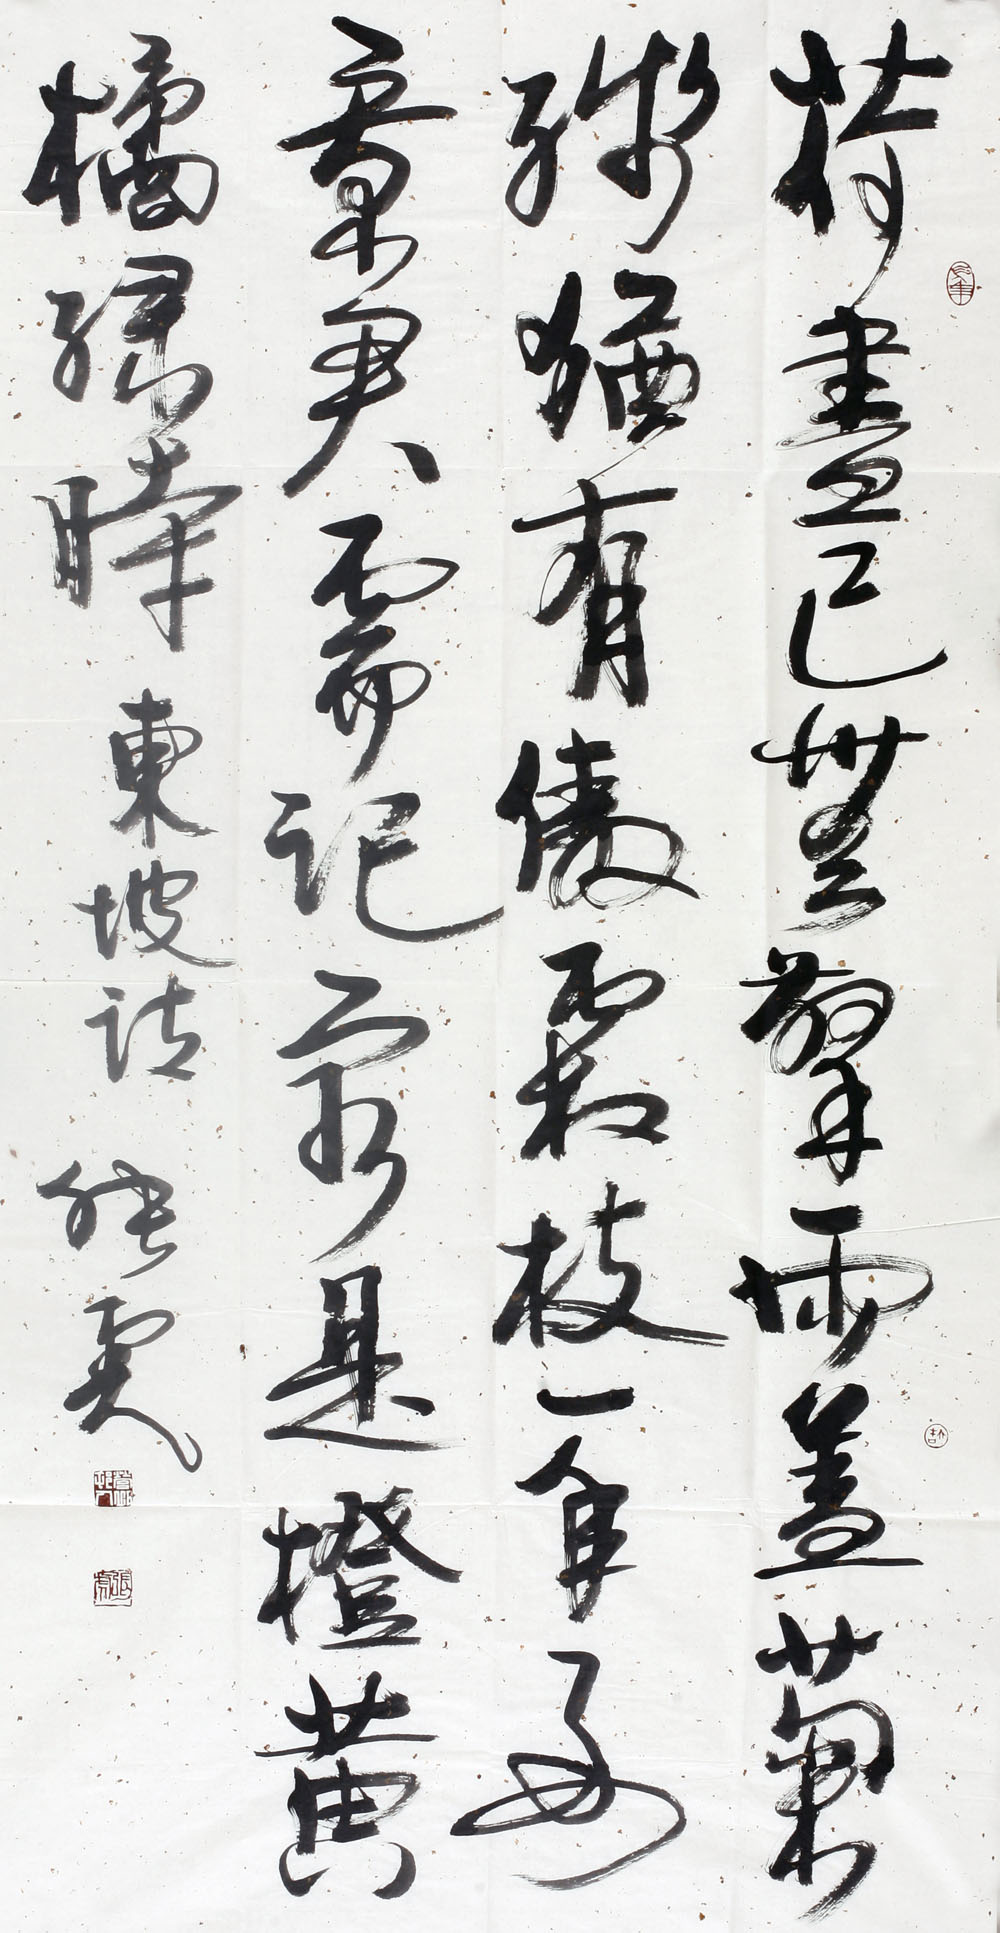 荷盡已無擎雨蓋菊
殘猶有傲霜枝一年好
景君需記最是橙黃
橘綠時 東坡詩